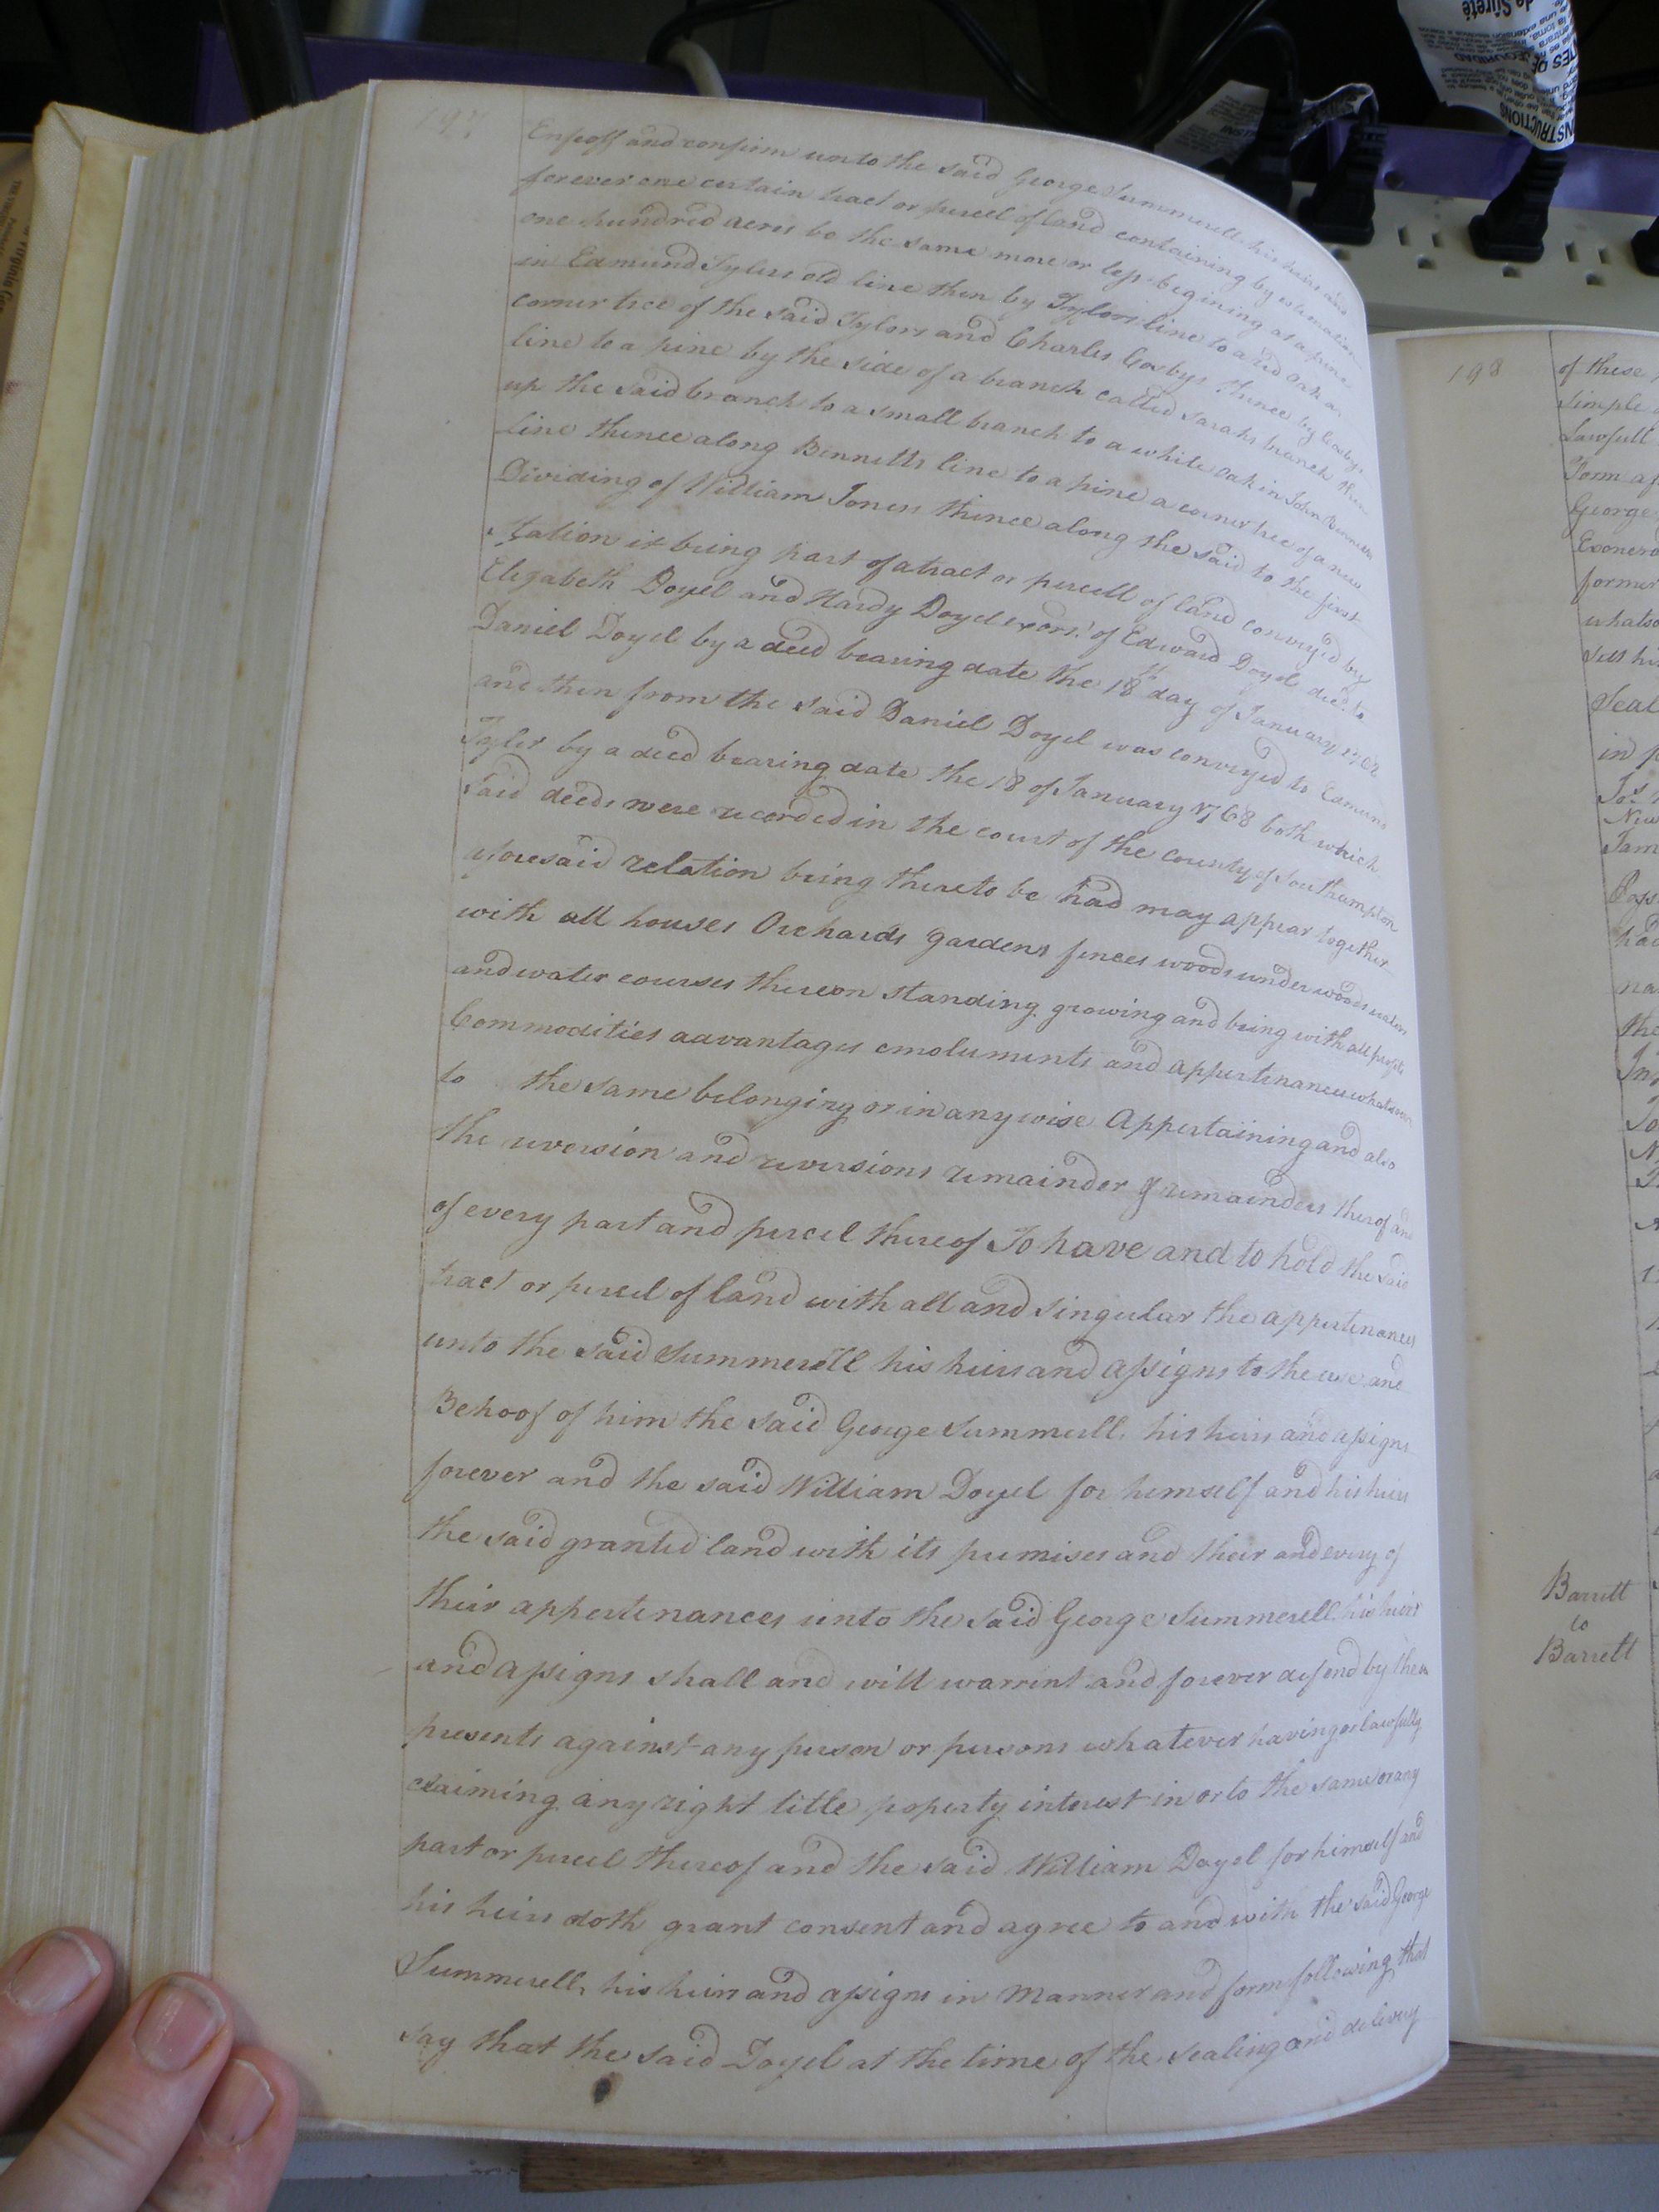 197
Enfeoff and confirm unto the said George Summerell his heirs and
forever one certain tract or percel of land containing by estimation
one hundred acres be the same more or less begining at a pine
in Edmund Tylers old line then by Tylors line to a red oak a
corner tree of the said Tylors and Charles Cosbys thence by Cosbys
line to a pine by the side of a branch called Sarahs branch then
up the said branch to a small branch to a white oak in John Bennetts
line thence along Bennetts line to a pine a corner tree of a new
Dividing of William Jones thence along the said to the first
Station it being part of a tract or percell of land conveyed by
Elizabeth Doyel and Hardy Doyel exors. of Edward Doyel decd. to
Daniel Doyel by a deed bearing date the 18th day of January 1768
and then from the said Daniel Doyel was conveyed to Edmund
Tyler by a deed bearing date the 18 of January 1768 both which
said deeds were recorded in the court of the county of Southampton
aforesaid relation being thereto be had may appear together
with all houses Orchards gardens fences woods underwoods waters
and water courses thereon standing growing and being with all profits
Commodities advantages emoluments and appertinances whatsoever
to the same belonging or in any wise Appertaining and also
the reversion and reversions remainder & remainders therof and
of every part and percel thereof To have and to hold the said
tract or percel of land with all and singular the appertenances
unto the said Summerell his heirs and assigns to the use and
Behoof of him the said George Summerell his heirs and assigns
forever and the said William Doyel for himself and his heirs
the said granted land with its premises and their and every of
their appertenances unto the said George Summerell his heirs
and assigns shall and will warrint and forever defend by these
presents against any person or persons whatever having or lawfully
claiming any right title property interest in or to the same or any
part or percel thereof and the said William Doyel for himself and
his heirs doth grant consent and agree to and with the said George
Summerell his heirs and assigns in Manner and form following that
say that the said Doyel at the time of the sealing and delivery
198
of these
simple
Lawfull
Form
George
former
Seal
in
the
Barrett
to
Barrett
de Sûreté
INSTRUCTIONS